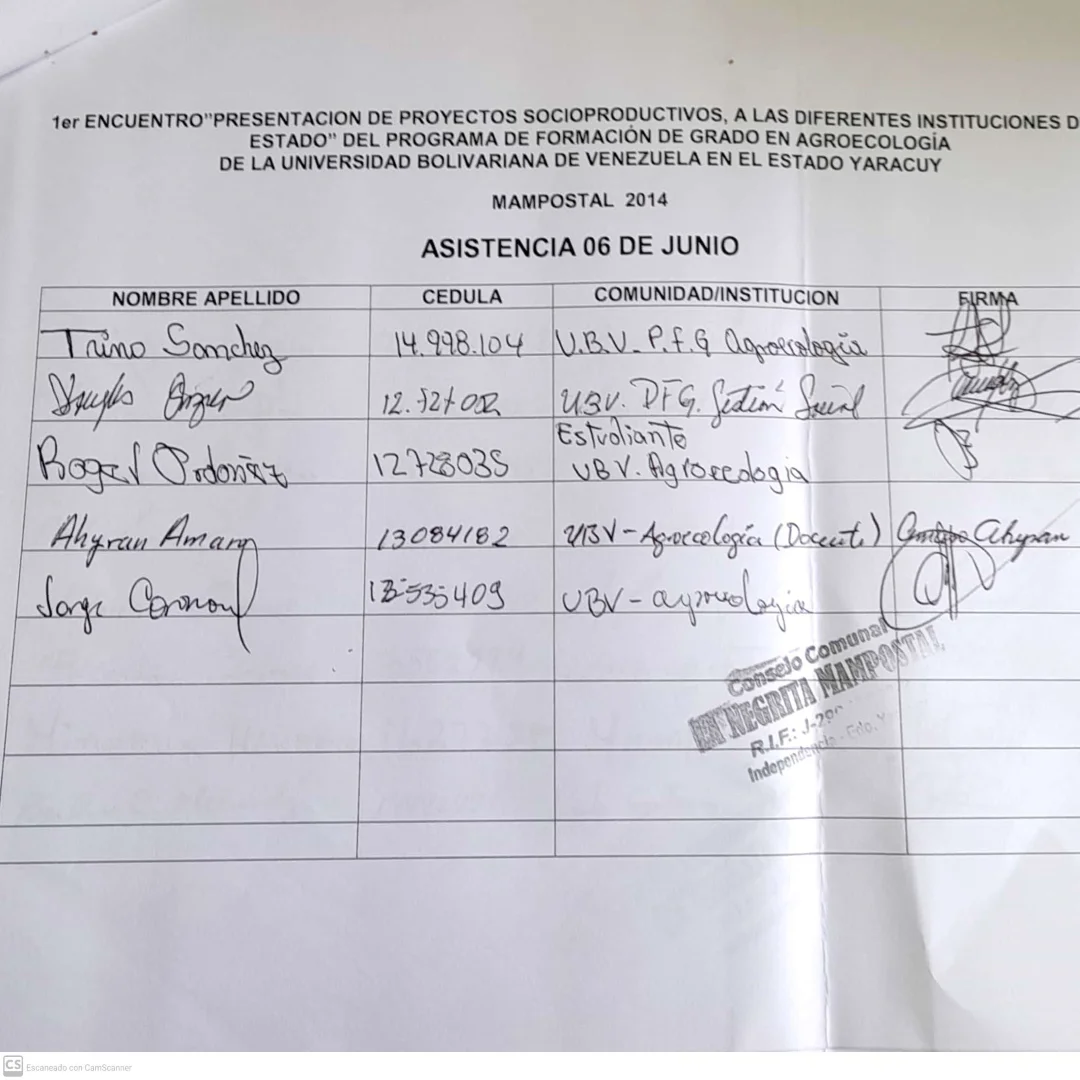 1er ENCUENTRO"PRESENTACION DE PROYECTOS SOCIOPRODUCTIVOS, A LAS DIFERENTES INSTITUCIONES D
ESTADO" DEL PROGRAMA DE FORMACIÓN DE GRADO EN AGROECOLOGÍA
DE LA UNIVERSIDAD BOLIVARIANA DE VENEZUELA EN EL ESTADO YARACUY
MAMPOSTAL 2014
ASISTENCIA 06 DE JUNIO
NOMBRE APELLIDO CEDULA COMUNIDAD/INSTITUCION FIRMA
Trino Sanchez 14.998.104 U.B.V. P.f.G Agroecología
UBV. PFG. Gestión Social
Estudiante
Roger Ordoñez 12728035 UBV. Agroecologia
Ahyran Amaro 13084182 UBV-Agroecología (Docente) Ahyran
Jorge UBV-agroecologia
Consejo Comunal
NEGRITA MAMPOSTAL
R.I.F.: J-29
Independencia - Edo. Y
CS Escaneado con CamScanner